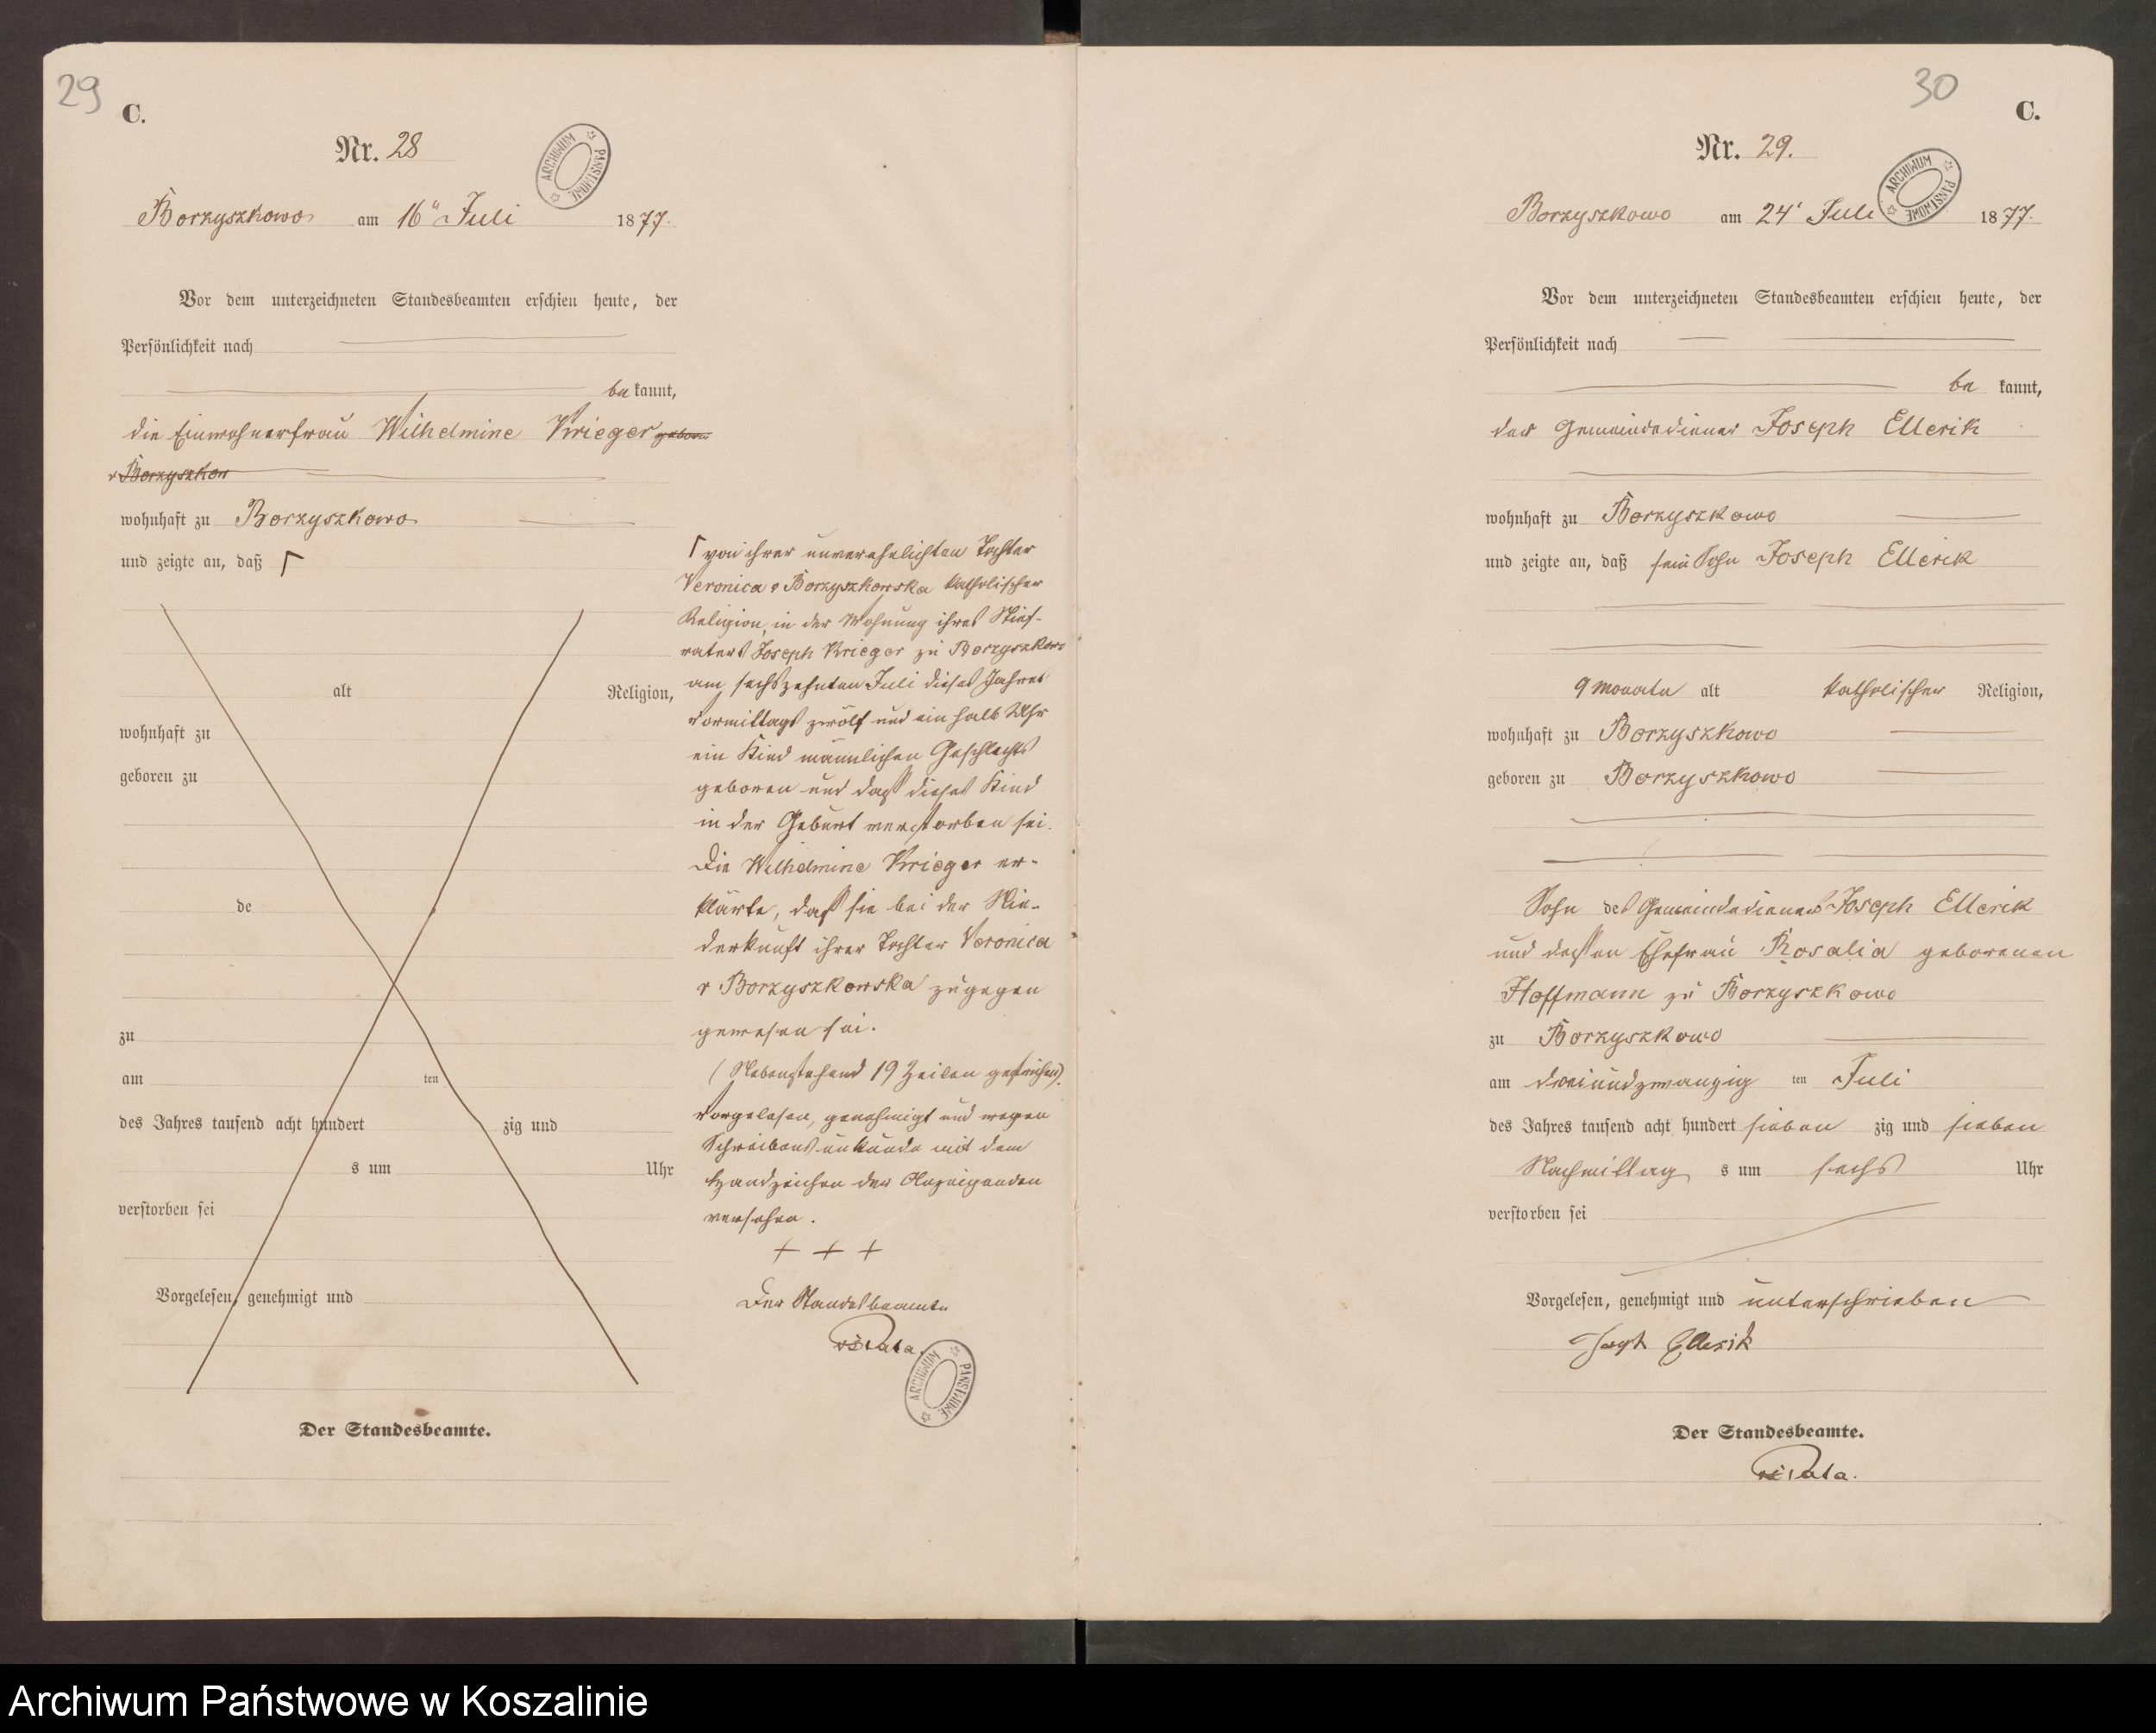 29
C.
Nr. 28
ARCHIWUM PAŃSTWOWE
Borzyszkowo am 16" Juli 1877.
Vor dem unterzeichneten Standesbeamten erschien heute, der
Persönlichkeit nach
be kannt,
die Einwohnerfrau Wilhelmine Krieger geboren
v Borzyszkow
wohnhaft zu Borzyszkowo
und zeigte an, daß Γ
alt Religion,
wohnhaft zu
geboren zu
de
zu
am ten
des Jahres tausend acht hundert zig und
s um Uhr
verstorben sei
Vorgelesen, genehmigt und
Der Standesbeamte.
Γ von ihrer unverehelichten Tochter
Veronica v Borzyszkowska katholischer
Religion, in der Wohnung ihres Stief-
vaters Joseph Krieger zu Borzyszkowo
am sechszehnten Juli dieses Jahres
Vormittags zwölf und ein halb Uhr
ein Kind männlichen Geschlechts
geboren und daß dieses Kind
in der Geburt verstorben sei.
Die Wilhelmine Krieger er-
klärte, daß sie bei der Nie-
derkunft ihrer Tochter Veronica
v Borzyszkowska zugegen
gewesen sei.
(Nebenstehend 19 Zeilen gestrichen).
Vorgelesen, genehmigt und wegen
Schreibensunkunde mit dem
Handzeichen der Anzeigenden
versehen.
+ + +
Der Standesbeamte
ARCHIWUM PAŃSTWOWE
30
C.
Nr. 29.
ARCHIWUM PAŃSTWOWE
Borzyszkowo am 24' Juli 1877.
Vor dem unterzeichneten Standesbeamten erschien heute, der
Persönlichkeit nach
be kannt,
der Gemeindediener Joseph Ellerik
wohnhaft zu Borzyszkowo
und zeigte an, daß sein Sohn Joseph Ellerik
9 Monate alt katholischer Religion,
wohnhaft zu Borzyszkowo
geboren zu Borzyszkowo
Sohn des Gemeindedieners Joseph Ellerik
und dessen Ehefrau Rosalia geborenen
Hoffmann zu Borzyszkowo
zu Borzyszkowo
am dreiundzwanzig ten Juli
des Jahres tausend acht hundert sieben zig und sieben
Nachmittag s um sechs Uhr
verstorben sei
Vorgelesen, genehmigt und unterschrieben
Joseph Ellerik
Der Standesbeamte.
Archiwum Państwowe w Koszalinie